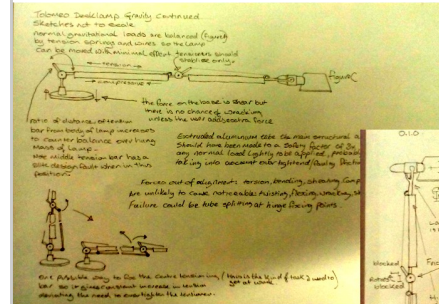 Tolomeo Desklamp Gravity Continued
Sketches not to scale
normal gravitational loads are balanced (figure
by tension springs and wires so the lamp
can be moved with minimal effort tensioners should
stabilise only.
tension
compression
figure C
the force on the base is shear but
there is no chance of wracking
unless the user adds extra force
ratio of distance of tension
bar from body of lamp increases
to counter balance over hung
mass of lamp.
middle tension bar has a
design fault when in this
position.
Extruded aluminium tube the main structural
should have been made to a safety factor of 3x
any normal load lightly to be applied,
taking into account over tightened
Forces out of alignment: torsion, bending, shearing,
are unlikely to cause noticeable twisting, flexing, wracking,
Failure could be tube splitting at hinge fixing points.
one possible way to fix the centre tensioning (this is the kind of task I used to
bar so it gives constant increase in tension get at work
the need to over tighten the tensioner.
0.1.0
blocked
Rotation
blocked